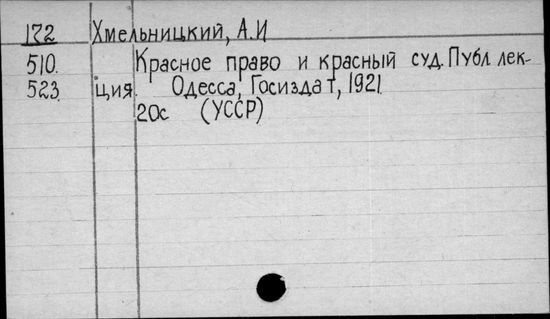 172 Хмельницкий, А.И
510. Красное право и красный суд. Публ лек-
523 ция. Одесса, Госиздат, 1921.
20с (УССР)